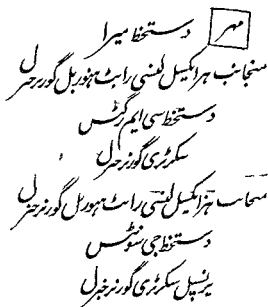 مہر دستخط میرا
منجانب ہزاکسیل لنسی رایٹ ہنوربل گورنر جنرل
دستخط سی ایم رکٹس
سکرٹری گورنر جنرل
منجاب ہزاکسیل لنسی رایٹ ہنوربل گورنر جنرل
دستخط جی سونٹس
پرنسپل سکرٹری گورنر جنرل